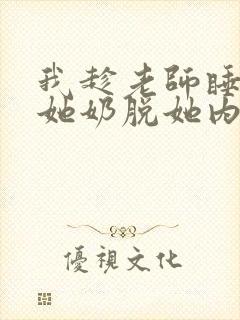 我趁老師睡
她奶脱她内
優視文化